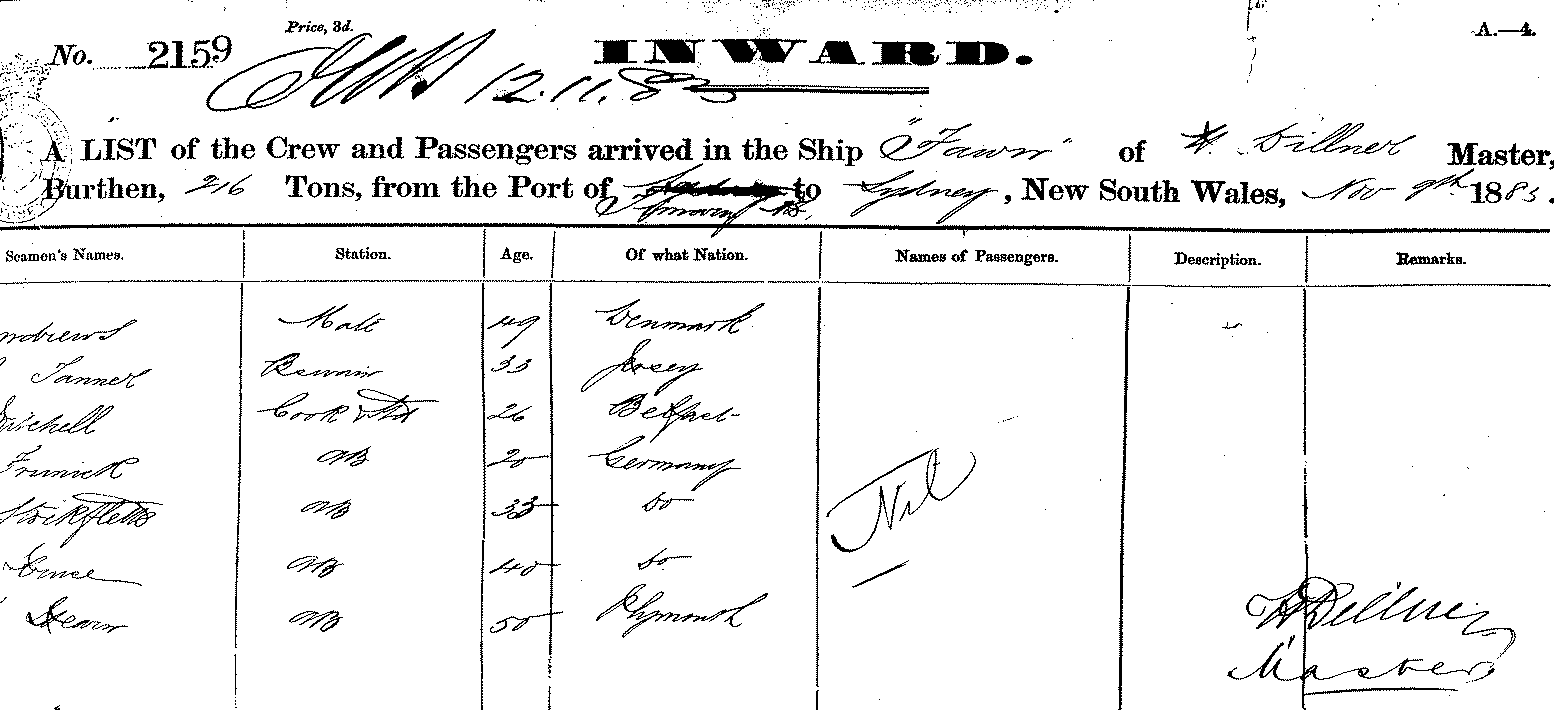 Price, 3d.
A.—4.
No. 2159
INWARD.
12.11.83
A LIST of the Crew and Passengers arrived in the Ship "Fawn" of H. Dillner Master,
Burthen, 216 Tons, from the Port of to Sydney, New South Wales, Nov 9th 1883.
Seamen's Names. Station. Age. Of what Nation. Names of Passengers. Description. Remarks.
ndrews Mate 49 Denmark
Tanner 33 Jersey
Cook & Std 26 Belfast
AB 20 Germany
AB 33 Do
Nil
AB 40 Do
Hearn AB 50 Plymouth
H Dillner
Master